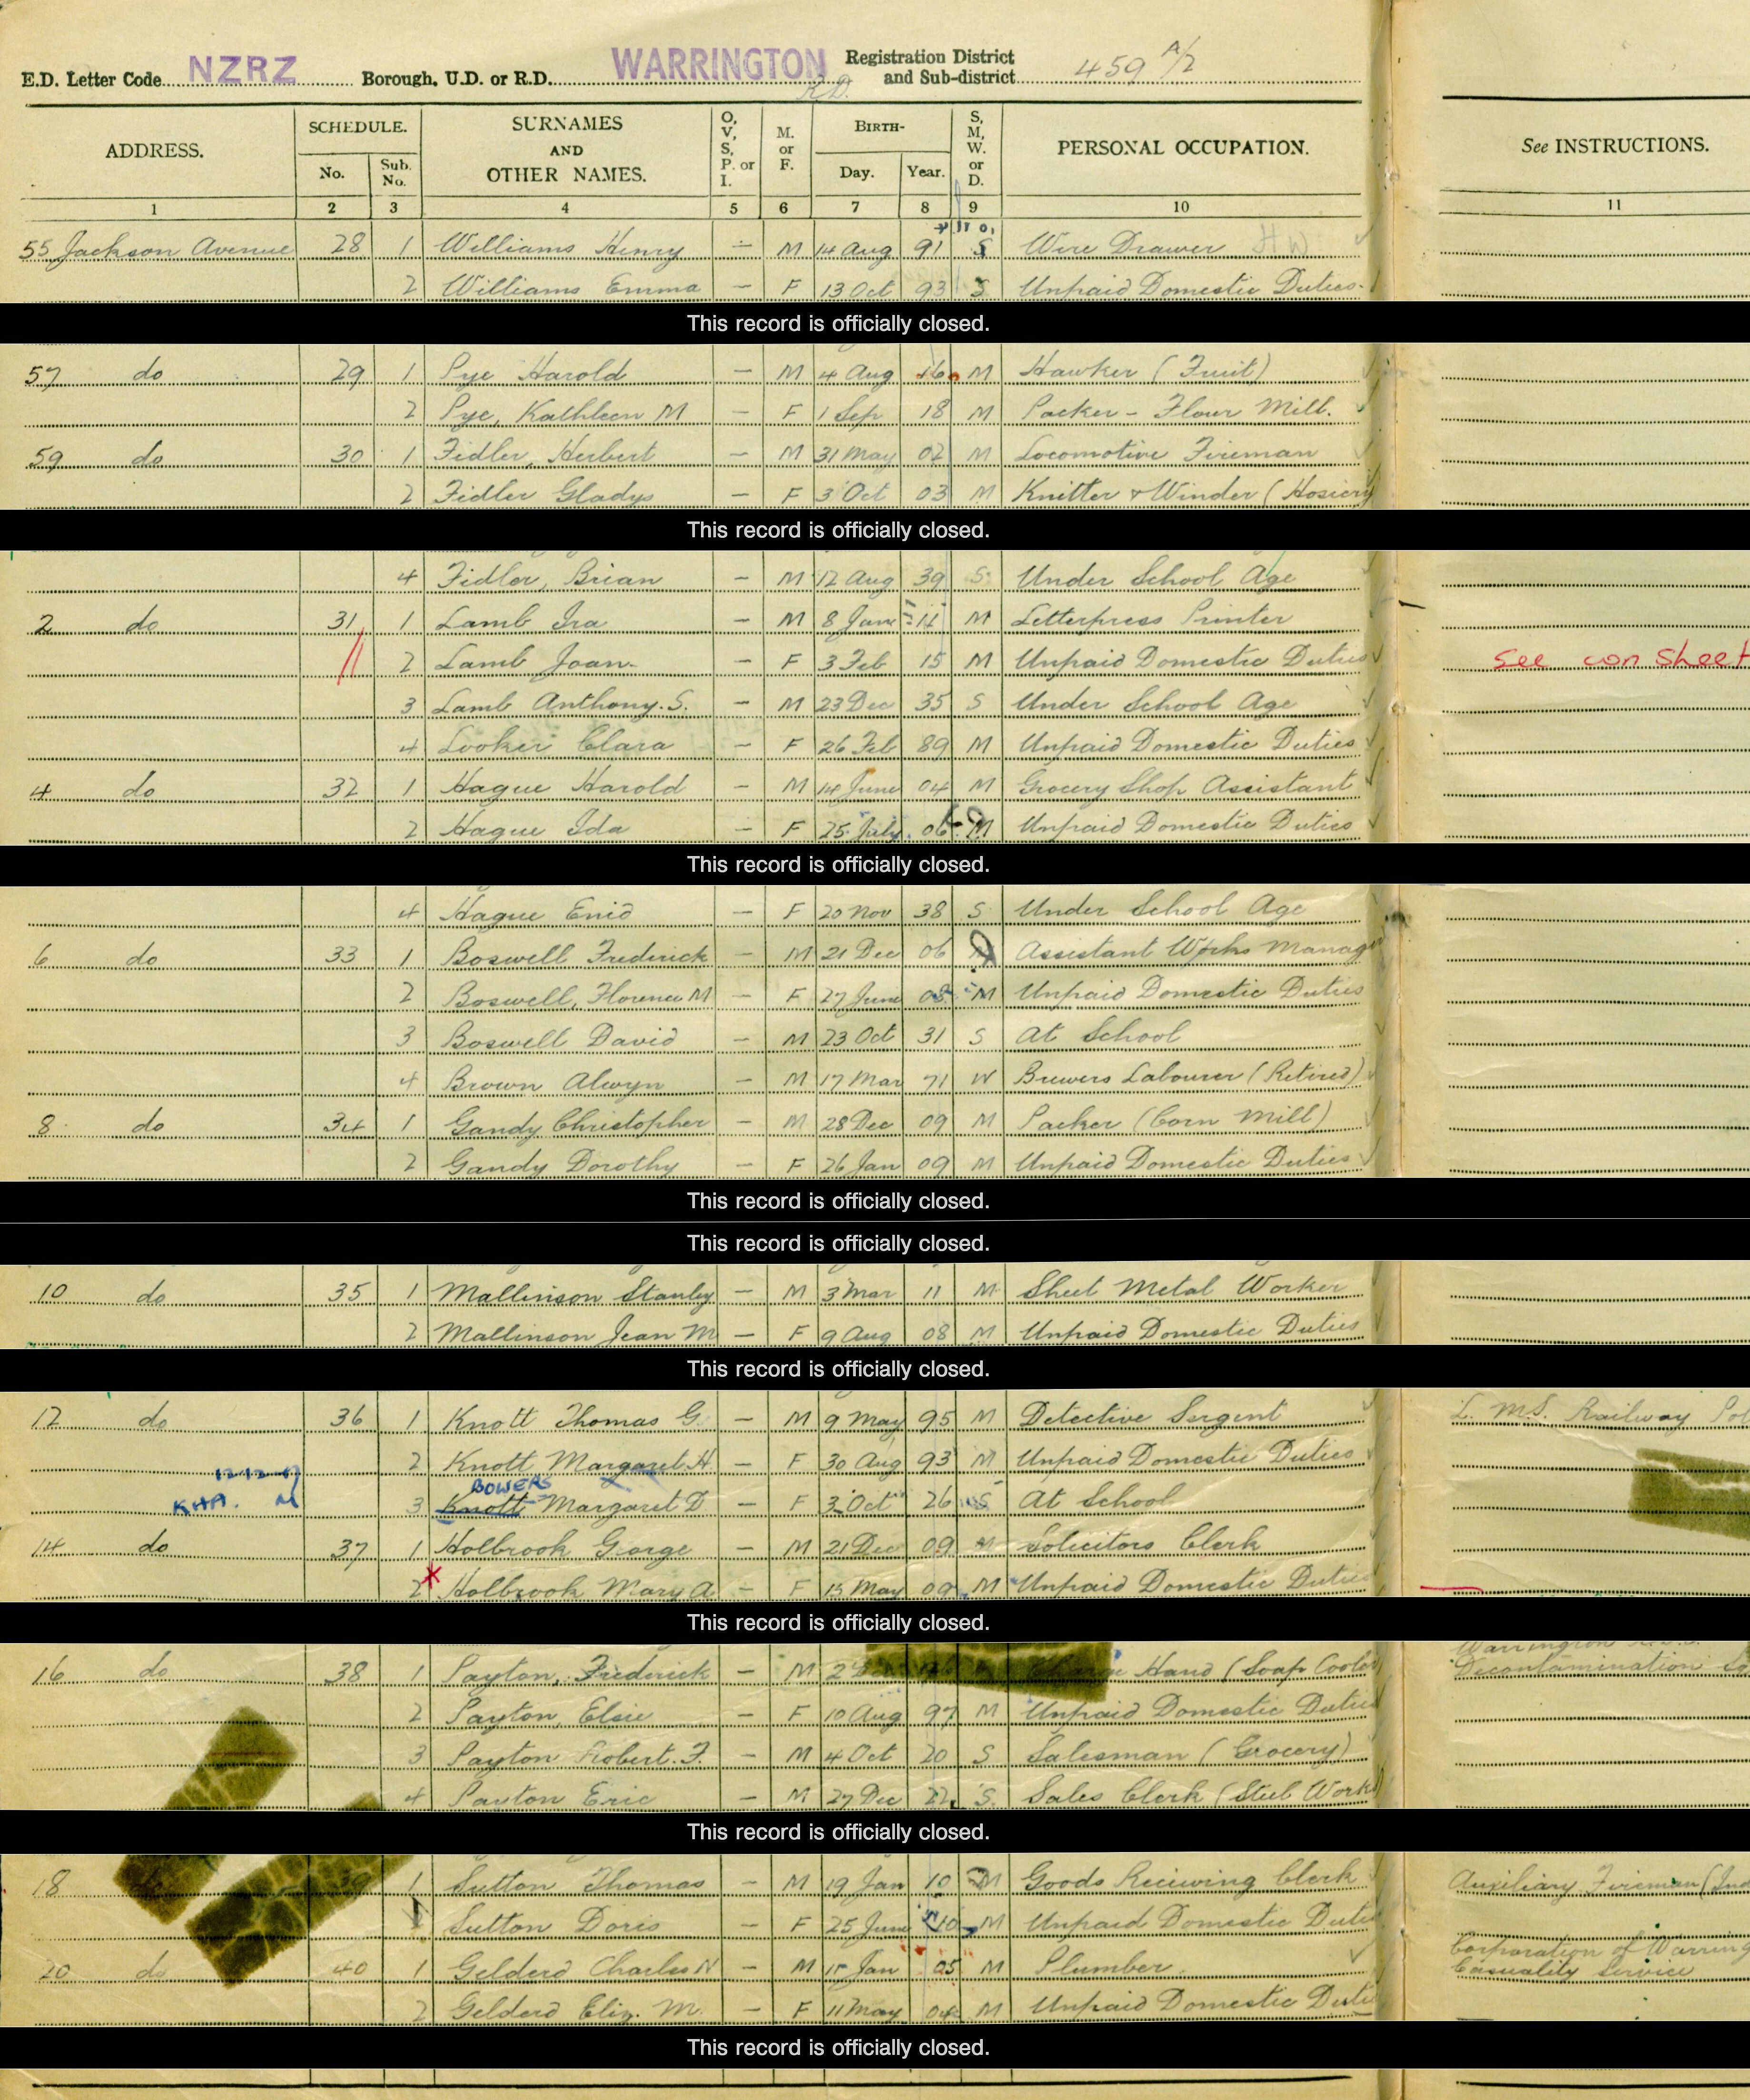 E.D. Letter Code NZRZ Borough, U.D. or R.D. WARRINGTON R.D. Registration District and Sub-district 459 A/2
ADDRESS. SCHEDULE. No. Sub. No. SURNAMES AND OTHER NAMES. O, V, S, P. or I. M. or F. BIRTH- Day. Year. S, M, W. or D. PERSONAL OCCUPATION. See INSTRUCTIONS.
1 2 3 4 5 6 7 8 9 10 11
55 Jackson Avenue 28 1 Williams Henry — M 14 Aug 91 S Wire Drawer HW
2 Williams Emma — F 13 Oct 93 S Unpaid Domestic Duties
This record is officially closed.
57 do 29 1 Pye Harold — M 4 Aug 16 M Hawker (Fruit)
2 Pye, Kathleen M — F 1 Sep 18 M Packer - Flour Mill.
59 do 30 1 Fidler, Herbert — M 31 May 02 M Locomotive Fireman
2 Fidler Gladys — F 3 Oct 03 M Knitter & Winder (Hosiery
This record is officially closed.
4 Fidler, Brian — M 12 Aug 39 S Under School Age
2 do 31 1 Lamb Ira — M 8 June 11 M Letterpress Printer
2 Lamb Joan — F 3 Feb 15 M Unpaid Domestic Duties See con sheet
3 Lamb Anthony. S. — M 23 Dec 35 S Under School Age
4 Looker Clara — F 26 Feb 89 M Unpaid Domestic Duties
4 do 32 1 Hague Harold — M 14 June 04 M Grocery Shop Assistant
2 Hague Ida — F 25 July 06 M Unpaid Domestic Duties
This record is officially closed.
4 Hague Enid — F 20 Nov 38 S Under School Age
6 do 33 1 Boswell Frederick — M 21 Dec 06 Assistant Works Manag
2 Boswell, Florence M — F 27 June 08 M Unpaid Domestic Duties
3 Boswell David — M 23 Oct 31 S At School
4 Brown Alwyn — M 17 Mar 71 W Brewers Labourer (Retired)
8 do 34 1 Gandy Christopher — M 28 Dec 09 M Packer (Corn Mill)
2 Gandy Dorothy — F 26 Jan 09 M Unpaid Domestic Duties
This record is officially closed.
This record is officially closed.
10 do 35 1 Mallinson Stanley — M 3 Mar 11 M Sheet Metal Worker
2 Mallinson Jean M — F 9 Aug 08 M Unpaid Domestic Duties
This record is officially closed.
12 do 36 1 Knott Thomas G. — M 9 May 95 M Detective Sergent L. M.S. Railway Pol
2 Knott Margaret H — F 30 Aug 93 M Unpaid Domestic Duties
BOWERS
KHA. M 3 Knott Margaret D — F 3 Oct 26 S At School
14 do 37 1 Holbrook George — M 21 Dec 09 M Solicitors Clerk
2 Holbrook Mary A — F 15 May 09 M Unpaid Domestic Duties
This record is officially closed.
Warrington
16 do 38 1 Payton, Frederick — M 2 Charge Hand (Soap Cooler) Decontamination
2 Payton, Elsie — F 10 Aug 97 M Unpaid Domestic Duties
3 Payton Robert. F. — M 4 Oct 20 S Salesman (Grocery)
4 Payton Eric — M 27 Dec 22 S. Sales Clerk (Steel Works)
This record is officially closed.
18 do 39 1 Sutton Thomas — M 19 Jan 10 M Goods Receiving Clerk Auxiliary Fireman (Ind
Sutton Doris — F 25 June 10 M Unpaid Domestic Duties
Corporation of Warring
20 do 40 1 Gelderd Charles N — M 15 Jan 05 M Plumber Casuality Service
2 Gelderd Eliz. M. — F 11 May 04 M Unpaid Domestic Duties
This record is officially closed.